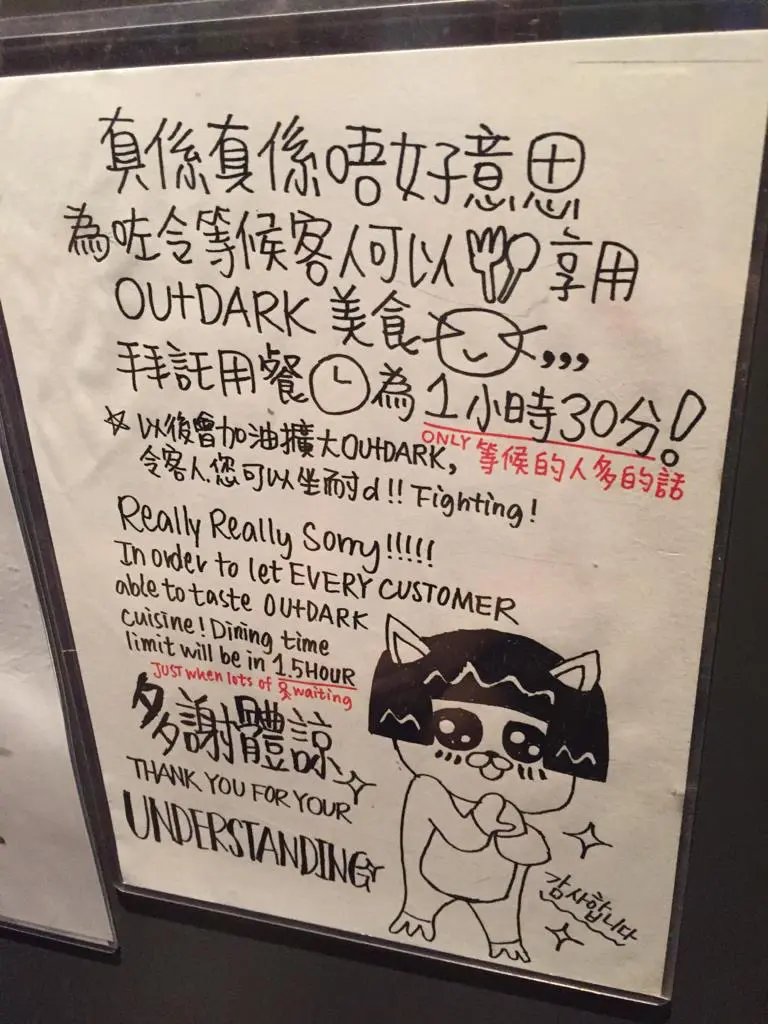 真係真係唔好意思
為咗令等候客人可以享用
OUtDARK 美食,,,
拜託用餐為1小時30分!
ONLY 等候的人多的話
☆以後會加油擴大OUtDARK,
令客人您可以坐耐d!! Fighting!
Really Really Sorry!!!!!
In order to let EVERY CUSTOMER
able to taste OUtDARK
cuisine! Dining time
limit will be in 1.5HOUR
JUST when lots of waiting
多謝體諒
THANK YOU FOR YOUR
UNDERSTANDING
감사합니다